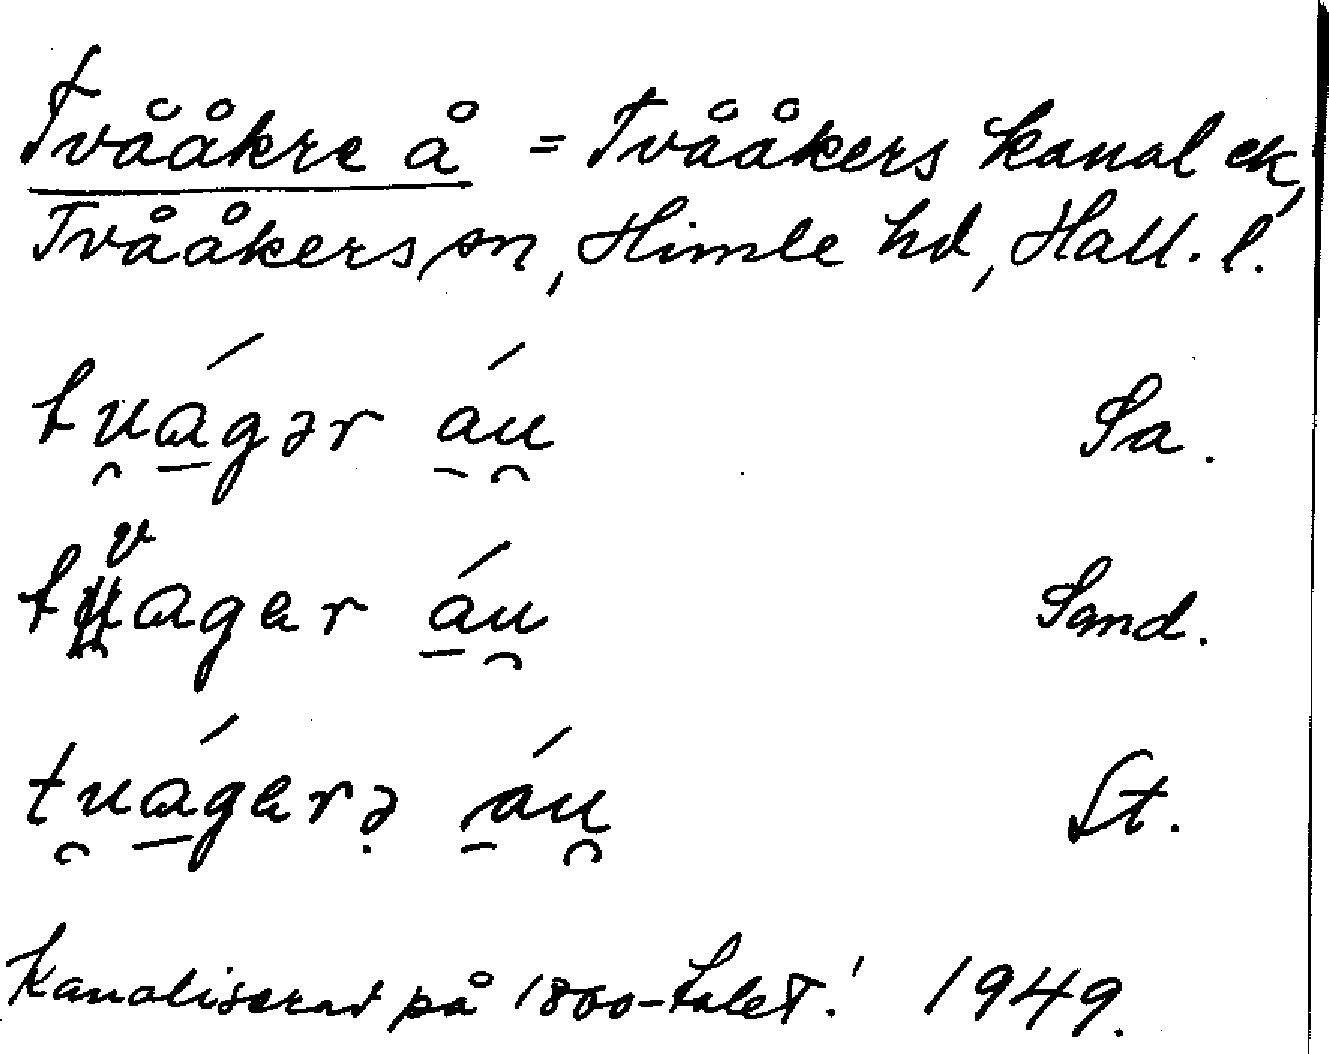 Tvååkre å = Tvååkers kanal ek,
Tvååkers sn, Himle hd, Hall. l.
tu̯á̱gər á̱u̯ Sa.
tvagar á̱u̯ Sand.
tu̯á̱garə̣ á̱u̯ St.
Kanaliserad på 1800-talet! 1949.